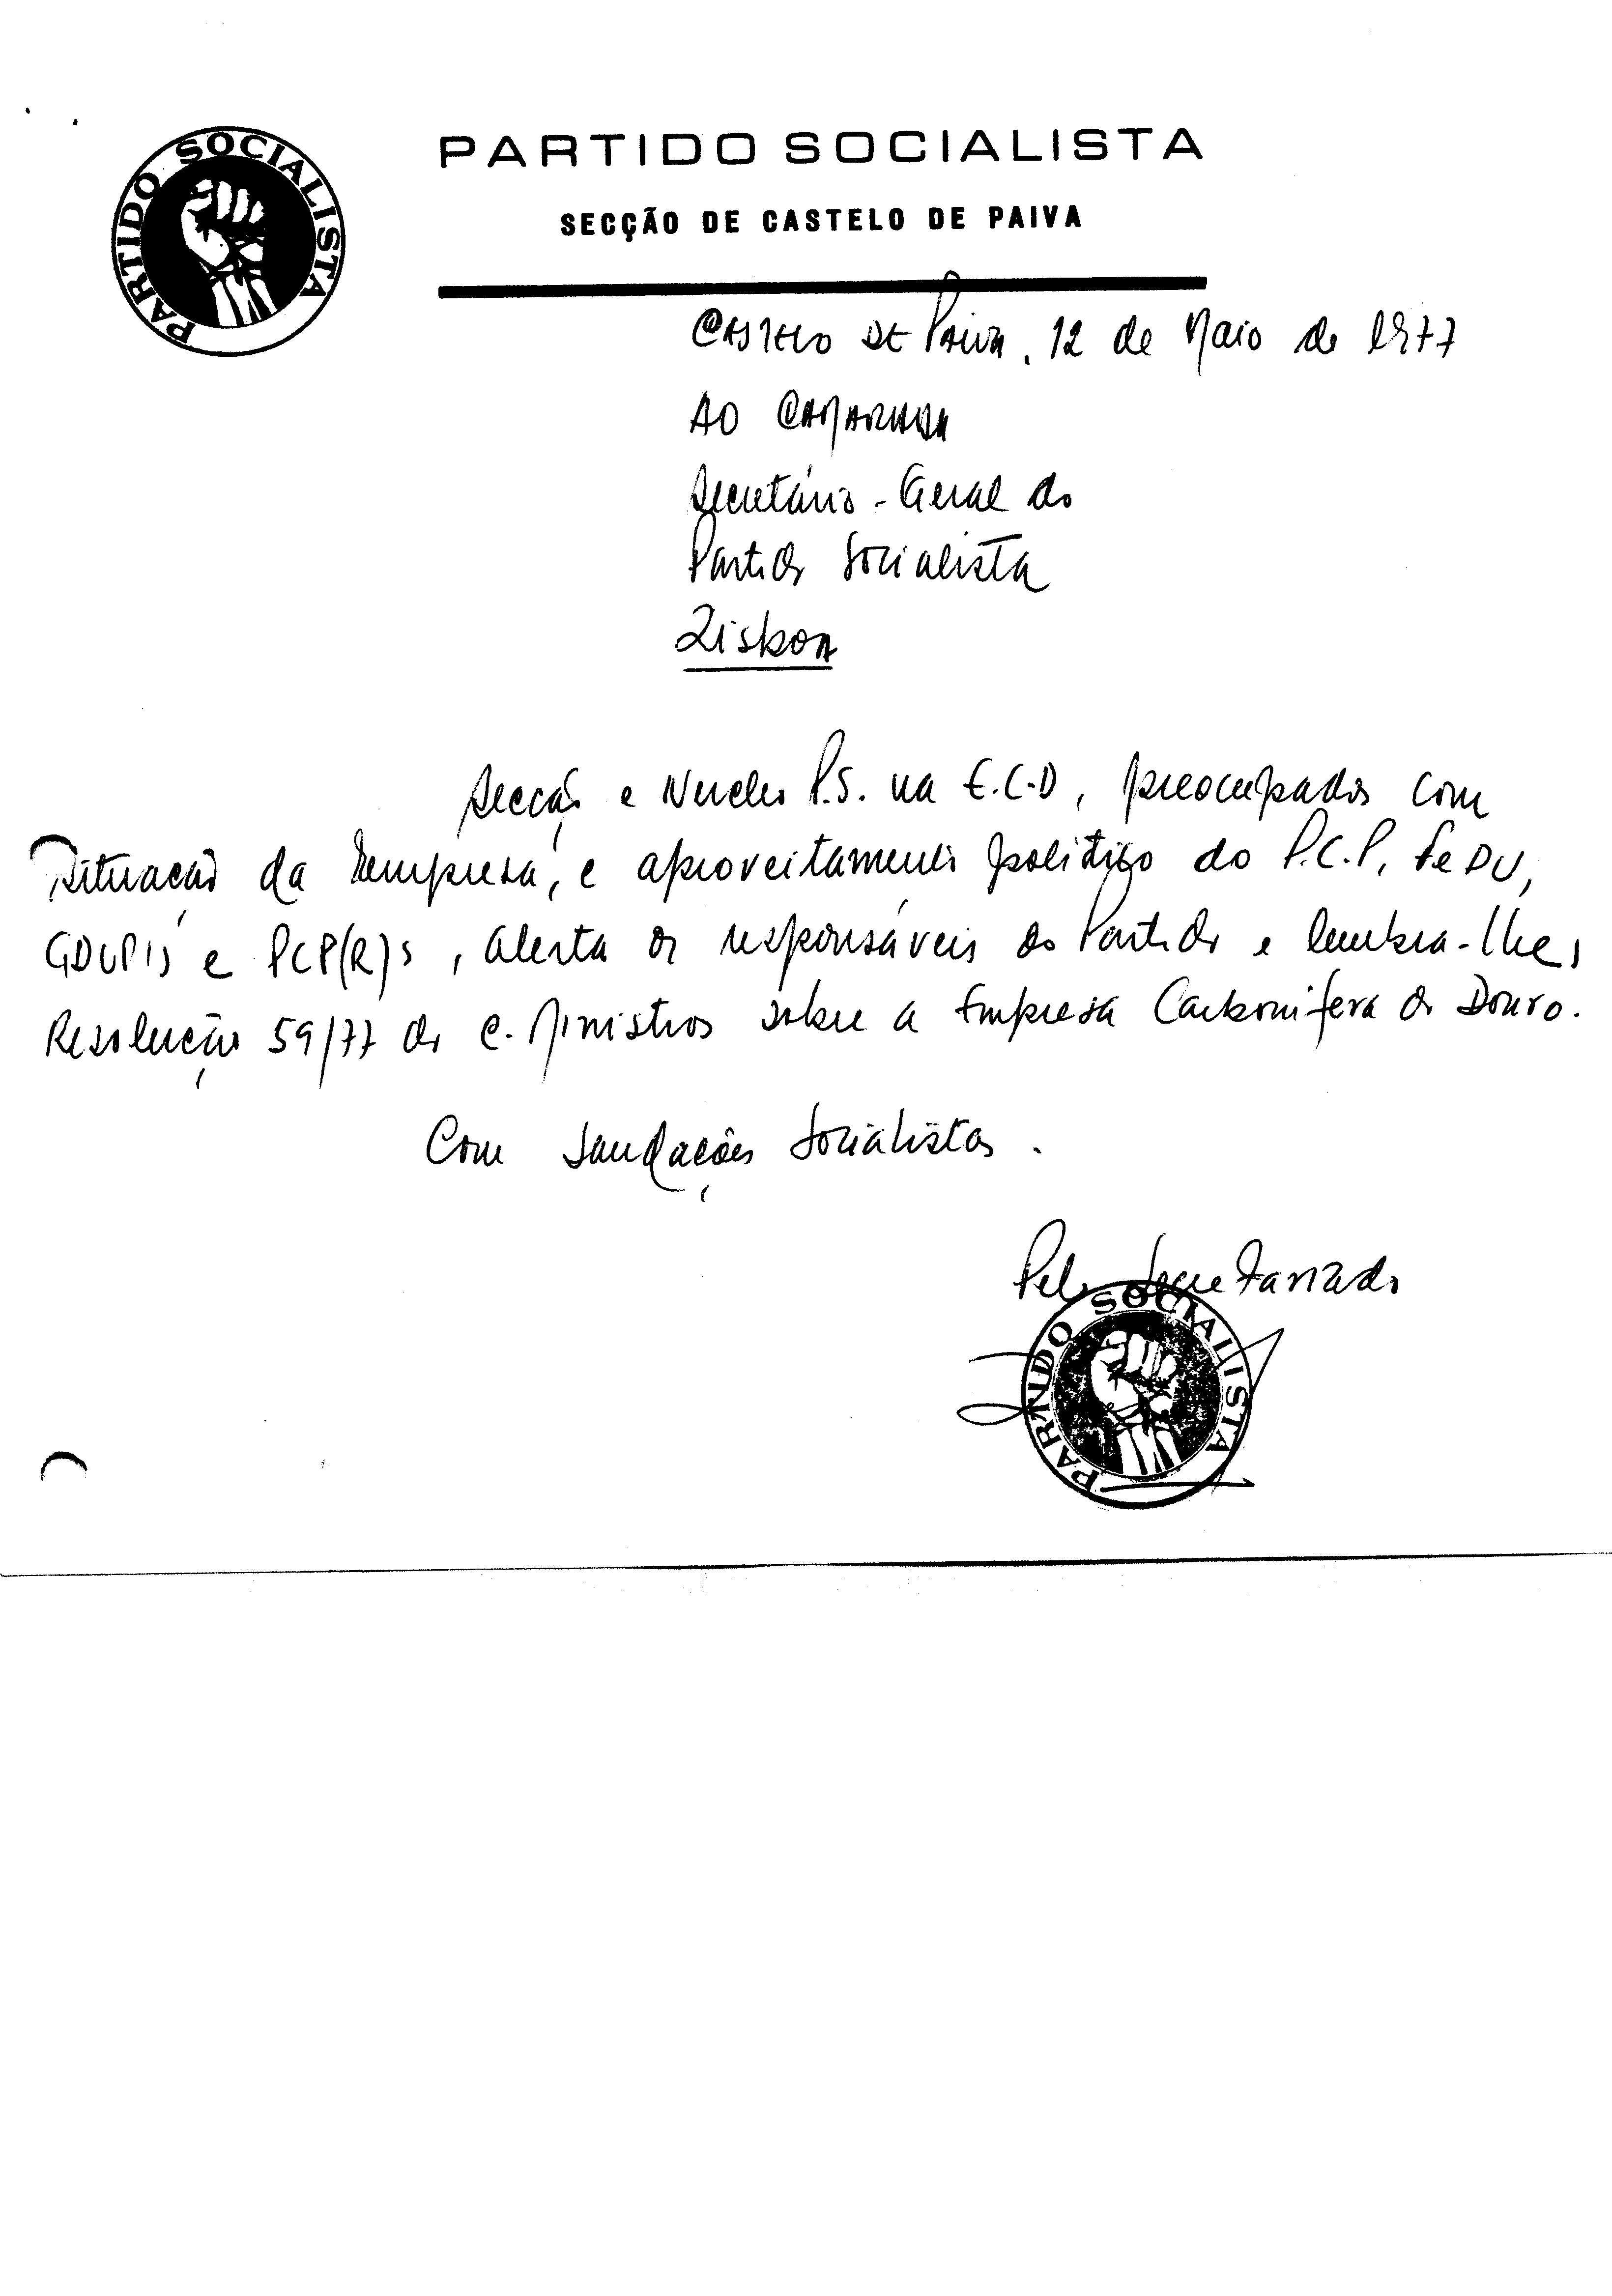 PARTIDO SOCIALISTA
PARTIDO SOCIALISTA
SECÇÃO DE CASTELO DE PAIVA
CASTELO DE PAIVA, 12 de Maio de 1977
AO CAMARADA
Secretário-Geral do
Partido Socialista
Lisboa
Secção e Nucleo P.S. na E.C.D, preocupados com
situação da Empresa, e aproveitamento politico do P.C.P, FePU,
GDUPIS e PCP(R)s, alerta os responsáveis do Partido e lembra-lhes
Resolução 59/77 do C. Ministros sobre a Empresa Carbonifera do Douro.
Com Saudações Socialistas.
Pelo Secretariado
PARTIDO SOCIALISTA